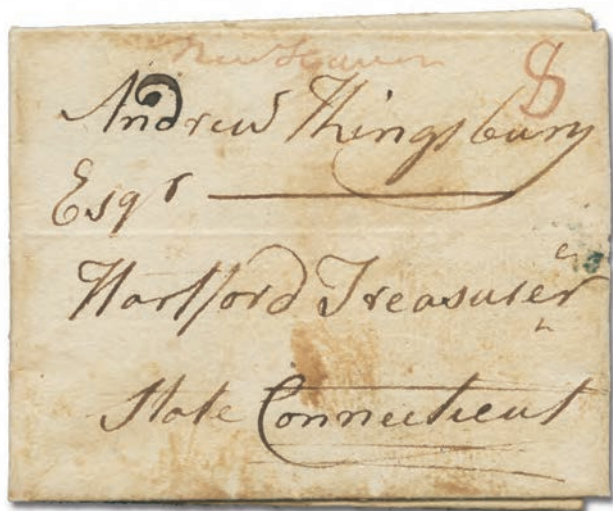 New Haven 8
Andrew Kingsbury
Esqr
Hartford Treasurer
State Connecticut